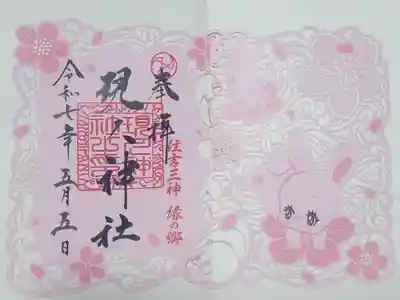 奉拝
住吉三神 縁の郷
現人神社
令和七年五月五日